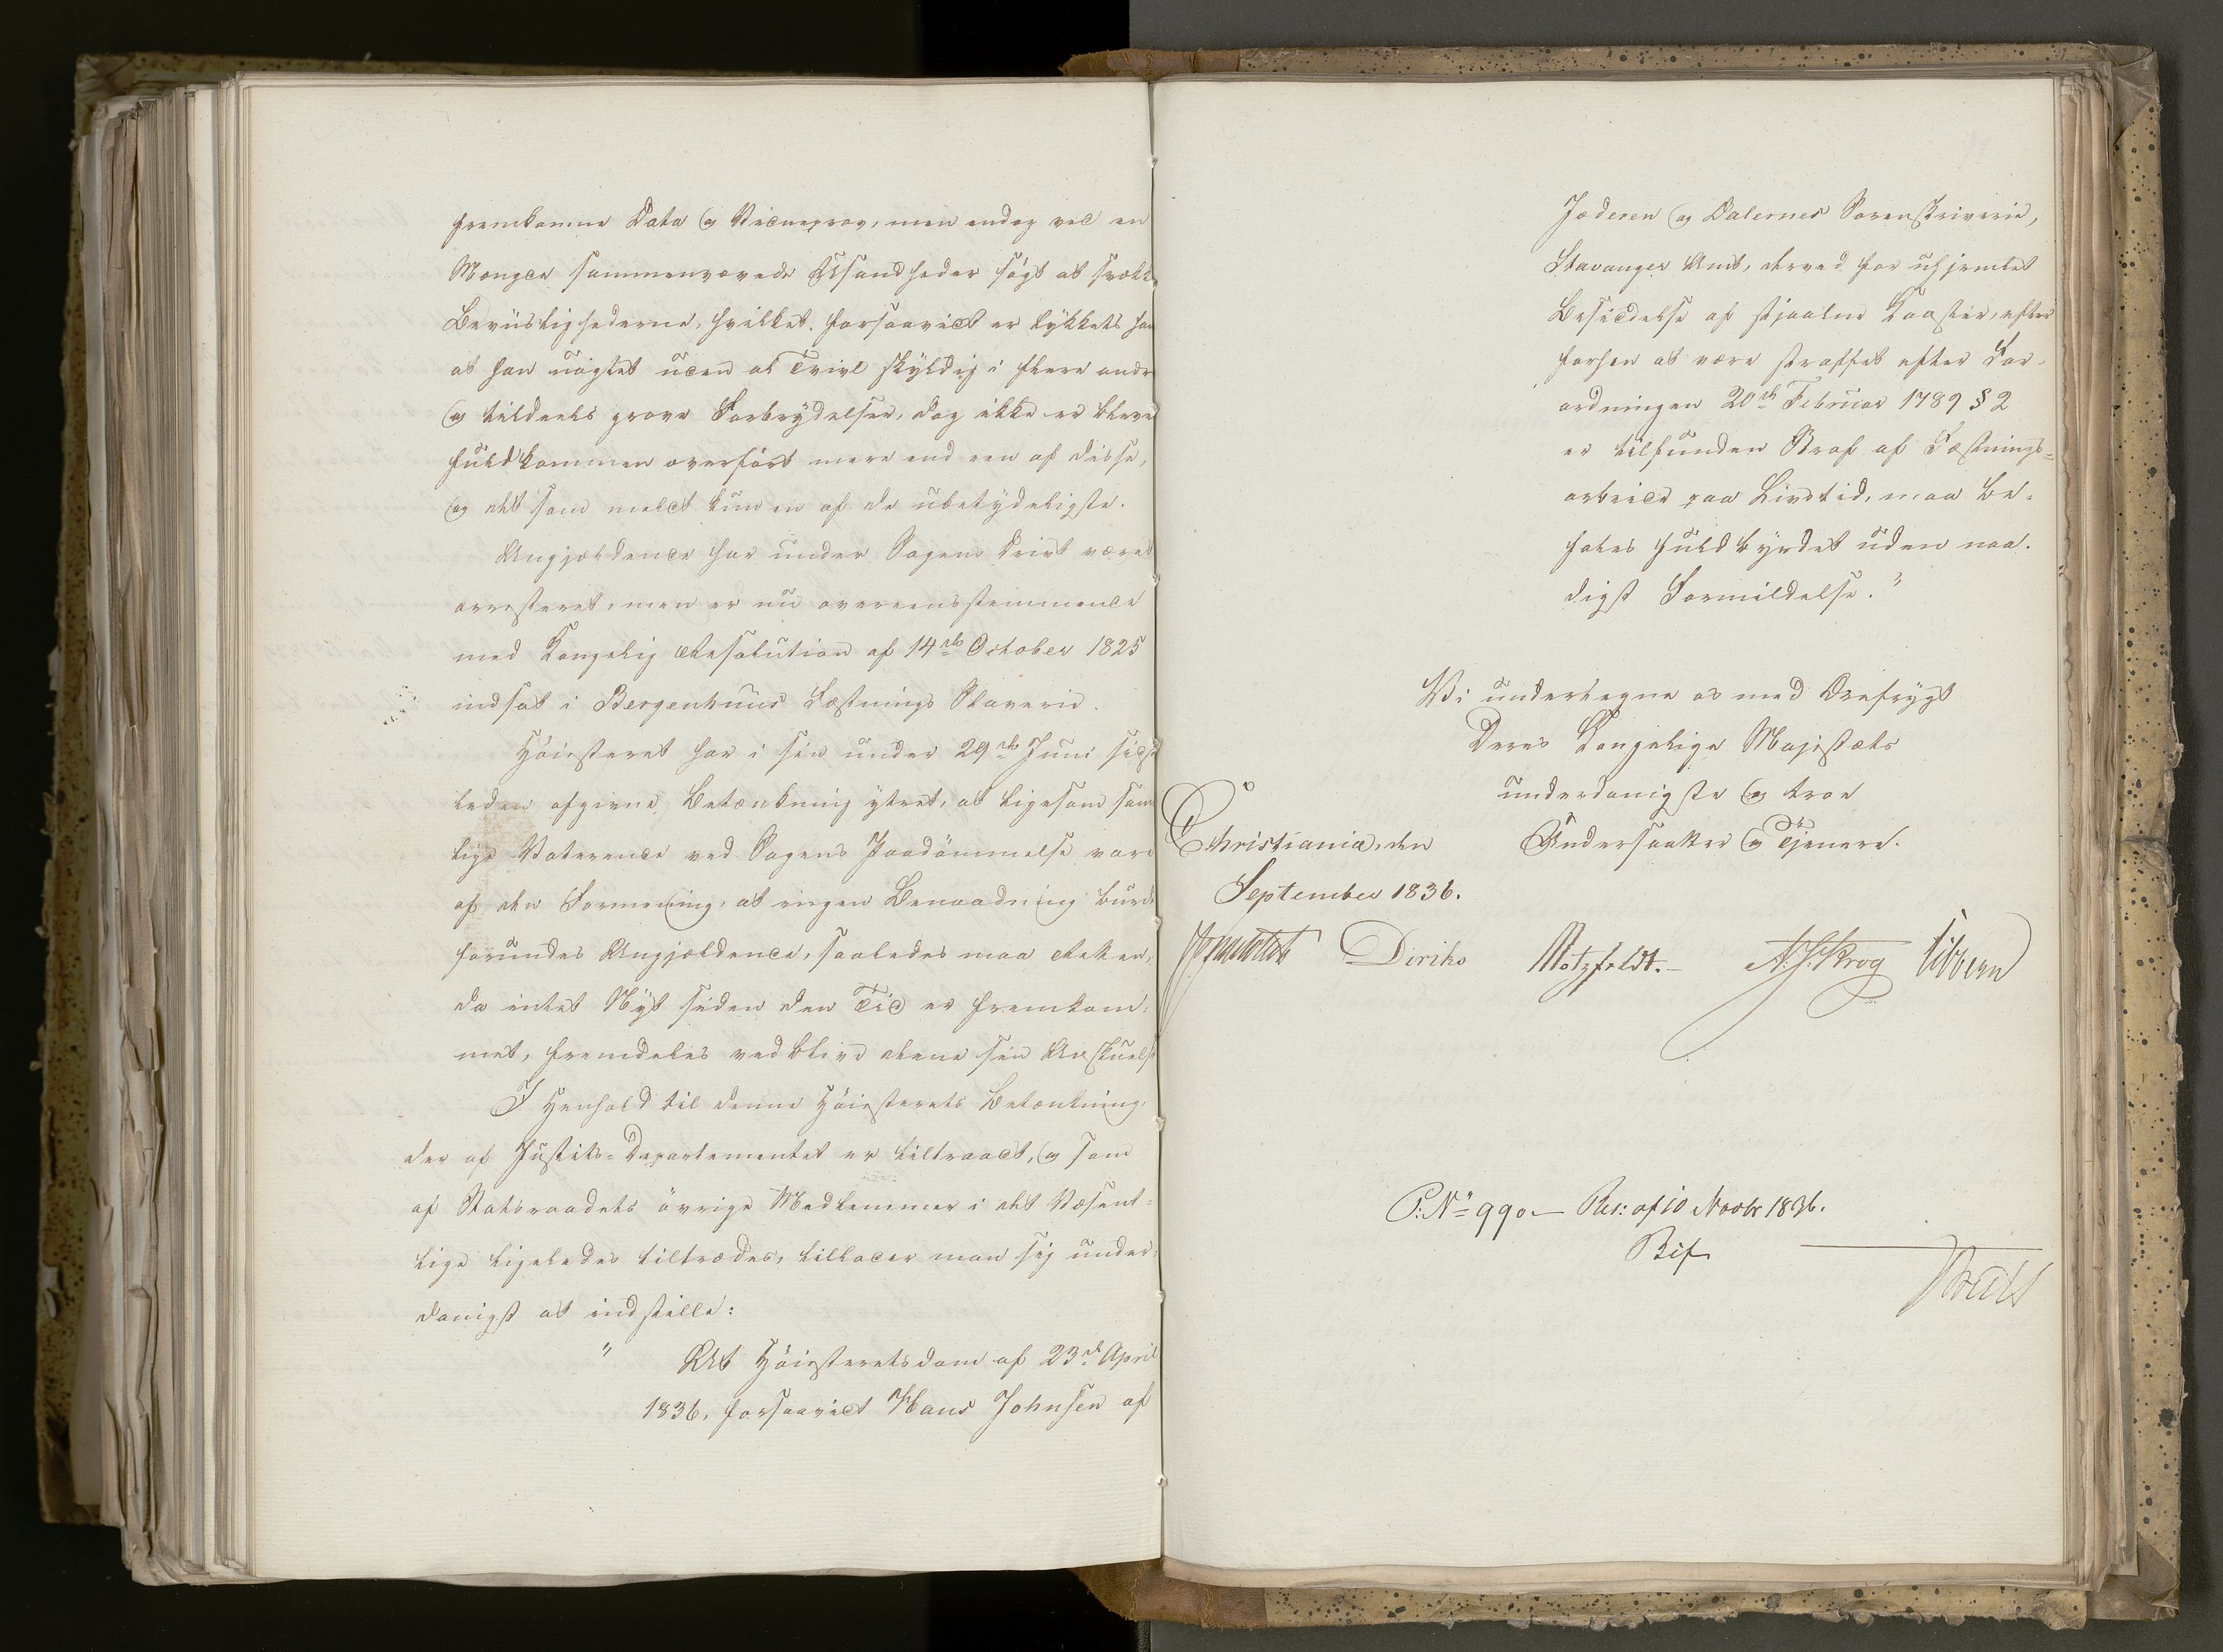 fremkomne Data og Vidneprov, men endog ved en
Mængde sammenvævede Usandheder søgt at svække
Beviisligheder­ne, hvilket forsaavidt er lykkets ham
at han uagtet uden al Tvivl skyldig i flere andre
og tildeels grove Forbrydelser, dog ikke er bleven
fuldkommen overført mere end een af disse,
og det som meldt kun en af de ubetydeligste.
Angjældende har under Sagens Drivt været
arresteret, men er nu overeensstemmende
med Kongelig Resolution af 14de October 1825
indsat i Bergenhuus Fæstnings Slaverie.
Høiesteret har i sin under 29de Juni sidst
leden afgivne Betænkning ytret, at ligesom samt
lige Voterende ved Sagens Paadømmelse vare
af den Formening, at ingen Benaadning burde
forundes Angjældende, saaledes maa Retten,
da intet Nyt siden den Tid er fremkom,
met, fremdeles vedblive denne sin Anskuelse
I Henhold til denne Høiesterets Betænkning,
der af Justits-Departementet er tiltraadt, og som
af Statsraadets øvrige Medlemmer i det Væsent-
lige ligeledes tiltrædes, tillader man sig under,
danigst at indstille:
" At Høiesteretsdom af 23de April
1836, forsaavidt Hans Johnsen af
Jæderen og Dalernes Sorenskriverie,
Stavanger Amt, derved for uhjemlet
Besiddelse af stjaalne Koster, efter
forhen at være straffet efter For-
ordningen 20de Februar 1789 § 2
er tilfunden Straf af Fæstnings-
arbeide paa Livstid, maa be-
fales fuldbyrdet uden naa-
digst Formildelse."
Vi undertegne os med Ærefrygt
Deres Kongelige Majestæts
underdanigste og troe
Christiania, den Undersaatter og Tjenere.
September 1836.
Diriks Motzfeldt. Krog Vibe
P: No 990 — Res: af 10 Novbr 1836.
Bif